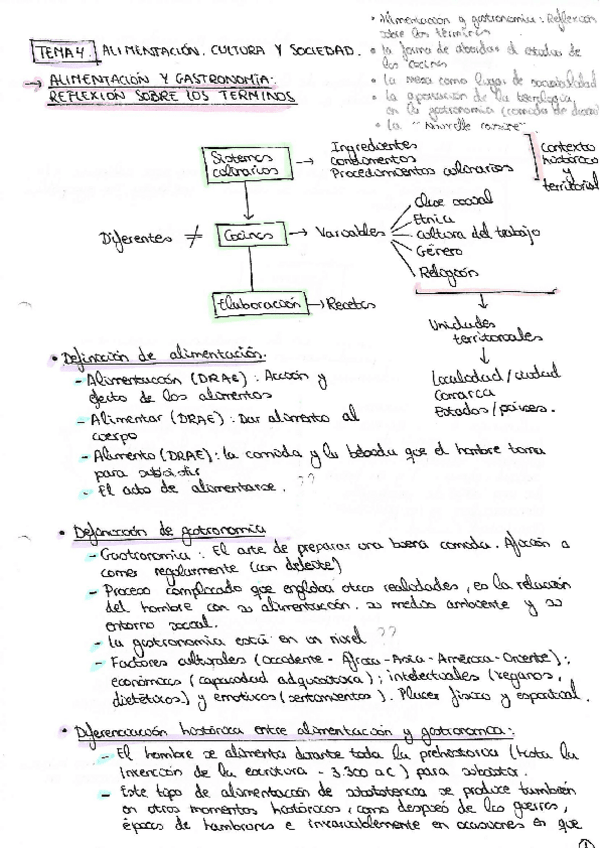 • Alimentación y gastronomía: Reflexión
sobre los términos
• la forma de abordar el estudio de
las cocinas
• la mesa como lugar de sociabilidad
• la aportación de la tecnología
en la gastronomía (comida de
• la "Nouvelle cuisine"
TEMA 4. ALIMENTACIÓN, CULTURA Y SOCIEDAD.
→ ALIMENTACIÓN Y GASTRONOMÍA:
REFLEXIÓN SOBRE LOS TÉRMINOS
Sistemas
culinarios
→ Ingredientes
condimentos
Procedimientos culinarios
contexto
histórico
y
territorial
Diferentes ≠ Cocinas → Variables
Clase social
Etnia
cultura del trabajo
Género
Religión
Elaboración → Recetas
Unidades
territoriales
Localidad/ciudad
Comarca
Estados/países.
• Definición de alimentación.
- Alimentación (DRAE): Acción y
efecto de los alimentos
- Alimentar (DRAE): Dar alimento al
cuerpo
- Alimento (DRAE): la comida y la bebida que el hombre toma
para subsistir
- El acto de alimentarse. ??
• Definición de gastronomía
- Gastronomía: El arte de preparar una buena comida. Afición a
comer regularmente (con deleite)
- Proceso complicado que engloba otras realidades, es la relación
del hombre con su alimentación, su medio ambiente y su
entorno social.
- La gastronomía está en un nivel ??
- Factores culturales (occidente - África - Asia - América - Oriente);
económicos (capacidad adquisitiva); intelectuales (veganos,
dietéticos) y emotivos (sentamientos). Placer físico y espiritual.
• Diferenciación histórica entre alimentación y gastronomía:
- El hombre se alimenta durante toda la prehistoria (hasta la
invención de la escritura - 3.300 aC) para subsistir.
- Este tipo de alimentación de subsistencia se produce también
en otros momentos históricos, como después de las guerras,
épocas de hambrunas e invariablemente en ocasiones en que
1